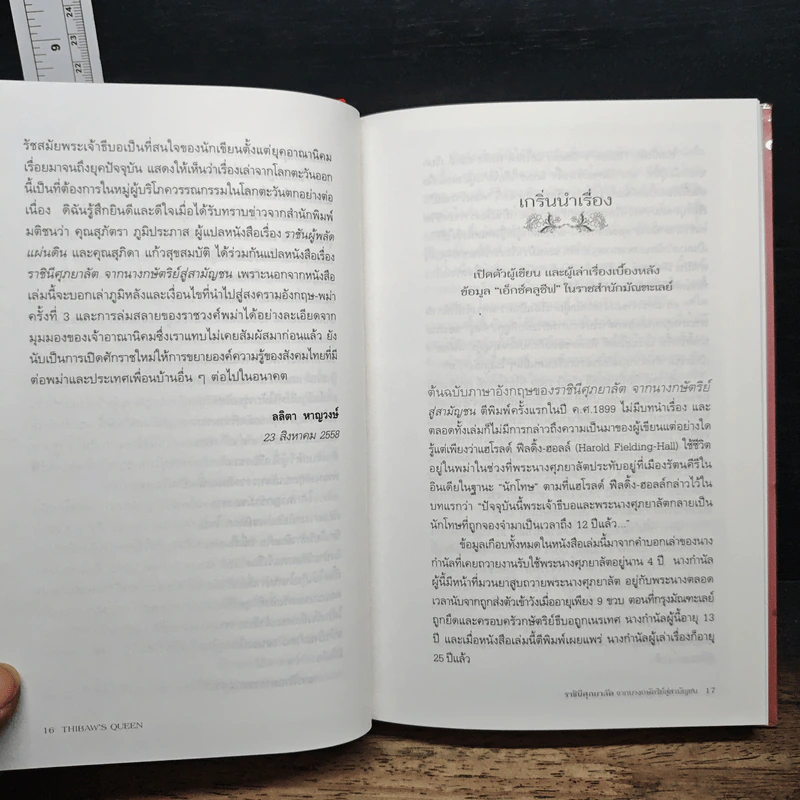 22
23
24
9
รัชสมัยพระเจ้าธีบอเป็นที่สนใจของนักเขียนตั้งแต่ยุคอาณานิคม
เรื่อยมาจนถึงยุคปัจจุบัน แสดงให้เห็นว่าเรื่องเล่าจากโลกตะวันออก
นี้เป็นที่ต้องการในหมู่ผู้บริโภควรรณกรรมในโลกตะวันตกอย่างต่อ
เนื่อง ดิฉันรู้สึกยินดีและดีใจเมื่อได้รับทราบข่าวจากสำนักพิมพ์
มติชนว่า คุณสุภัตรา ภูมิประภาส ผู้แปลหนังสือเรื่อง ราชันผู้พลัด
แผ่นดิน และคุณสุภิดา แก้วสุขสมบัติ ได้ร่วมกันแปลหนังสือเรื่อง
ราชินีศุภยาลัต จากนางกษัตริย์สู่สามัญชน เพราะนอกจากหนังสือ
เล่มนี้จะบอกเล่าภูมิหลังและเงื่อนไขที่นำไปสู่สงครามอังกฤษ-พม่า
ครั้งที่ 3 และการล่มสลายของราชวงศ์พม่าได้อย่างละเอียดจาก
มุมมองของเจ้าอาณานิคมซึ่งเราแทบไม่เคยสัมผัสมาก่อนแล้ว ยัง
นับเป็นการเปิดศักราชใหม่ให้การขยายองค์ความรู้ของสังคมไทยที่มี
ต่อพม่าและประเทศเพื่อนบ้านอื่น ๆ ต่อไปในอนาคต
ลลิตา หาญวงษ์
23 สิงหาคม 2558
16 THIBAW'S QUEEN
เกริ่นนำเรื่อง
เปิดตัวผู้เขียน และผู้เล่าเรื่องเบื้องหลัง
ข้อมูล “เอ็กซ์คลูซีฟ” ในราชสำนักมัณฑะเลย์
ต้นฉบับภาษาอังกฤษของราชินีศุภยาลัต จากนางกษัตริย์
สู่สามัญชน ตีพิมพ์ครั้งแรกในปี ค.ศ.1899 ไม่มีบทนำเรื่อง และ
ตลอดทั้งเล่มก็ไม่มีการกล่าวถึงความเป็นมาของผู้เขียนแต่อย่างใด
รู้แต่เพียงว่าแฮโรลด์ ฟีลดิ้ง-ฮอลล์ (Harold Fielding-Hall) ใช้ชีวิต
อยู่ในพม่าในช่วงที่พระนางศุภยาลัตประทับอยู่ที่เมืองรัตนคีรีใน
อินเดียในฐานะ “นักโทษ” ตามที่แฮโรลด์ ฟีลดิ้ง-ฮอลล์กล่าวไว้ใน
บทแรกว่า “ปัจจุบันนี้พระเจ้าธีบอและพระนางศุภยาลัตกลายเป็น
นักโทษที่ถูกจองจำมาเป็นเวลาถึง 12 ปีแล้ว...”
ข้อมูลเกือบทั้งหมดในหนังสือเล่มนี้มาจากคำบอกเล่าของนาง
กำนัลที่เคยถวายงานรับใช้พระนางศุภยาลัตอยู่นาน 4 ปี นางกำนัล
ผู้นี้มีหน้าที่มวนยาสูบถวายพระนางศุภยาลัต อยู่กับพระนางตลอด
เวลานับจากถูกส่งตัวเข้าวังเมื่ออายุเพียง 9 ขวบ ตอนที่กรุงมัณฑะเลย์
ถูกยึดและครอบครัวกษัตริย์ธีบอถูกเนรเทศ นางกำนัลผู้นี้อายุ 13
ปี และเมื่อหนังสือเล่มนี้ตีพิมพ์เผยแพร่ นางกำนัลผู้เล่าเรื่องก็อายุ
25 ปีแล้ว
ราชินีศุภยาลัต จากนางกษัตริย์สู่สามัญชน 17